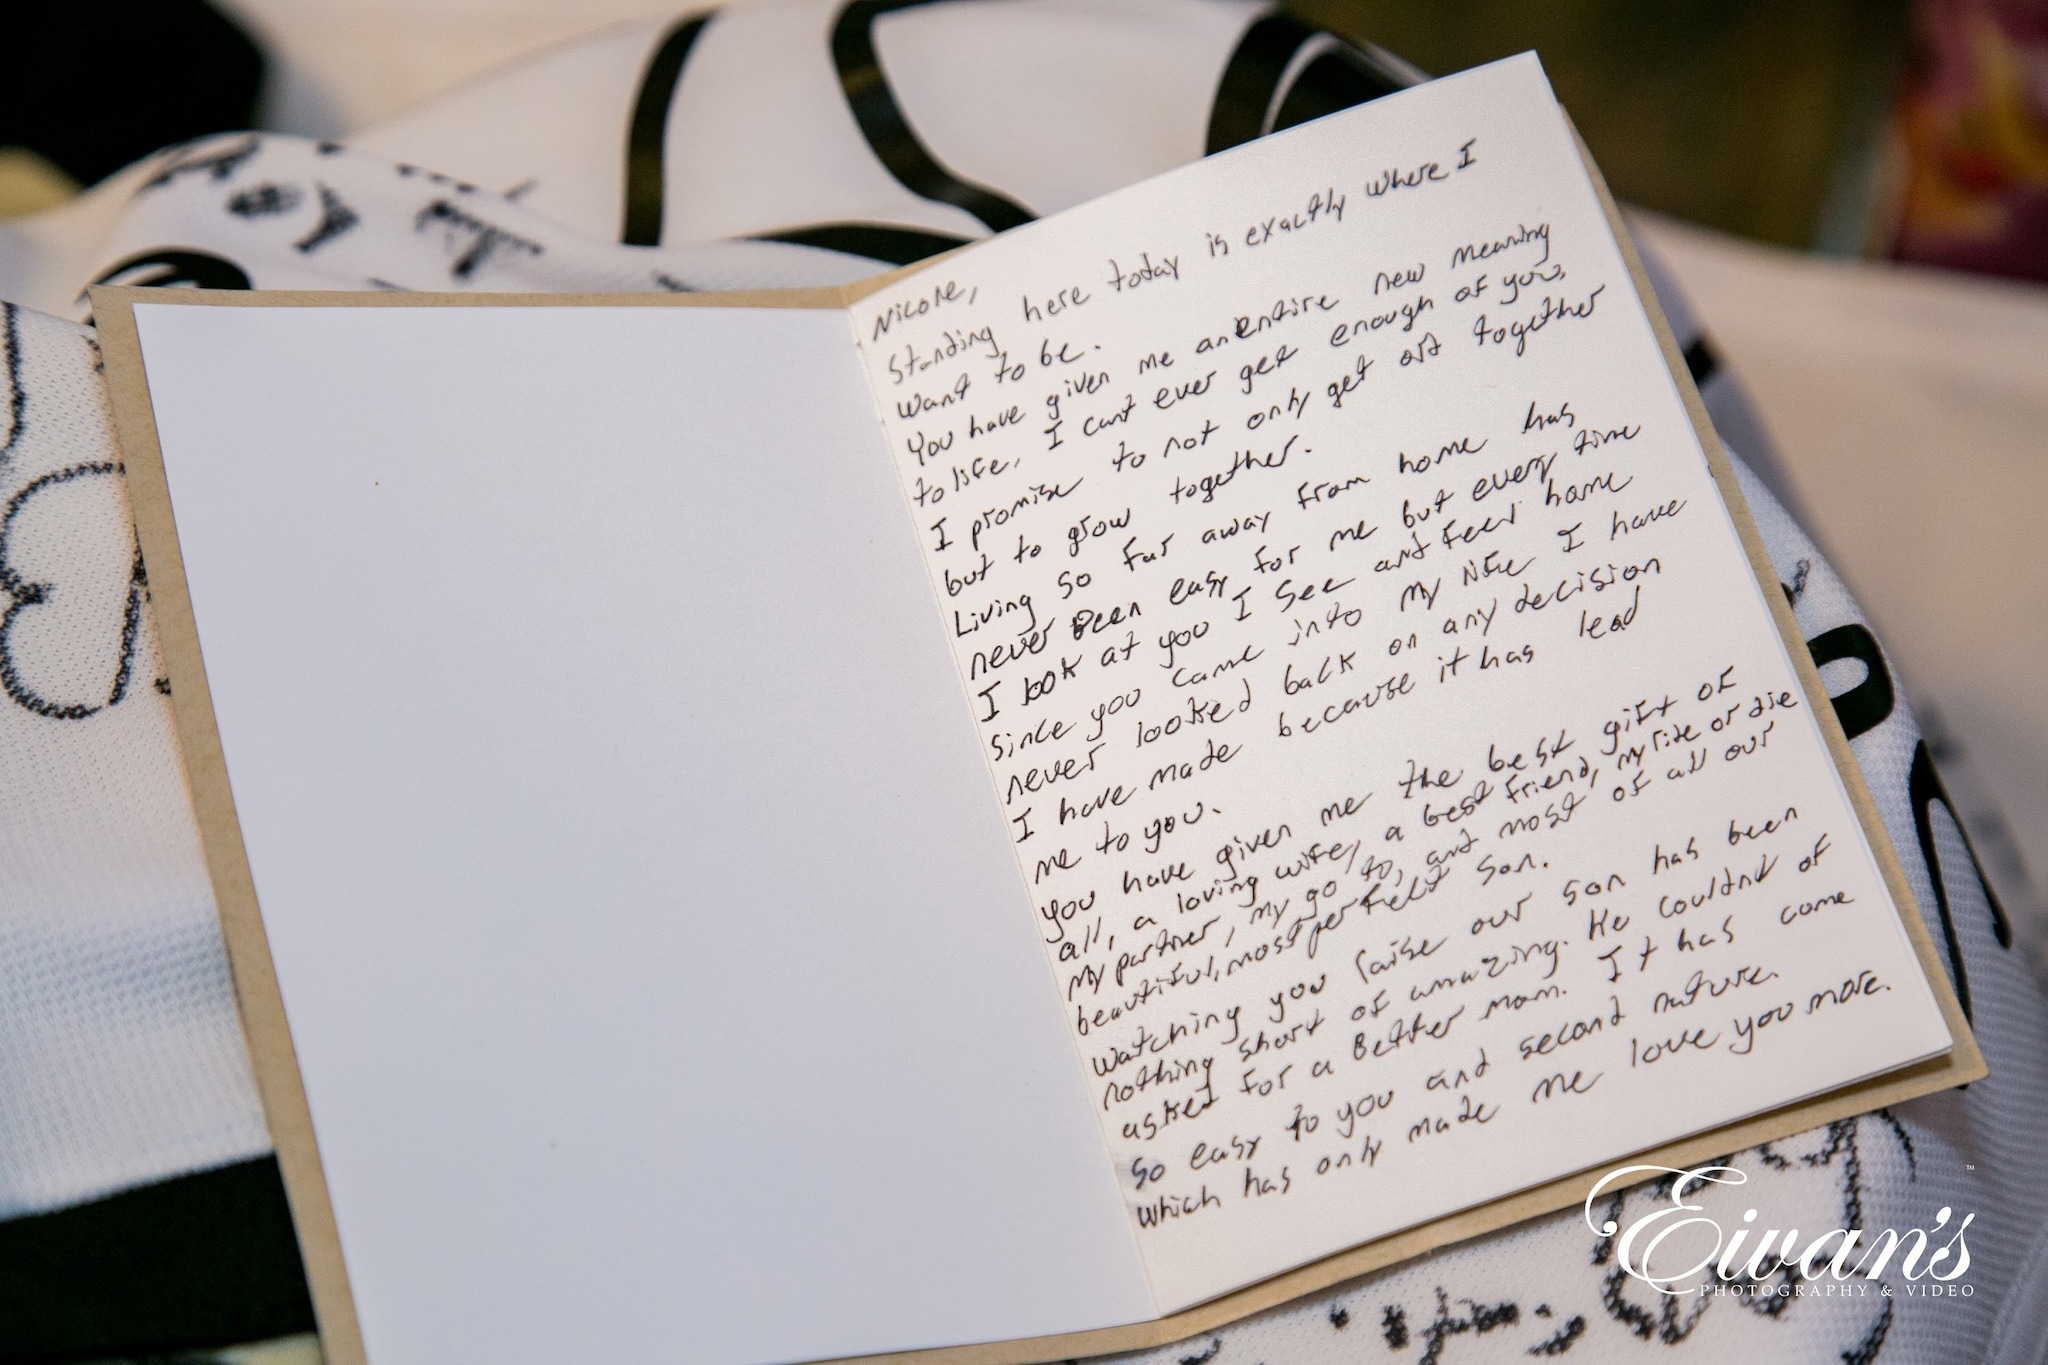 Nicole,
Standing here today is exactly where I
want to be.
You have given me an entire new meaning
to life, I cant ever get enough of you,
I promise to not only get old together
but to grow together.
Living so far away from home has
never Been easy for me but every time
I look at you I see and feel home
since you came into my life I have
never looked back on any decision
I have made because it has lead
me to you.
you have given me the best gift of
all, a loving wife, a best friend, my ride or die
my partner, my go to, and most of all our
beautiful, most perfect son.
Watching you raise our son has been
nothing short of amazing. He couldnt of
asked for a Better mom. It has come
so easy to you and second nature.
which has only made me love you more.
Eivan's™
PHOTOGRAPHY & VIDEO